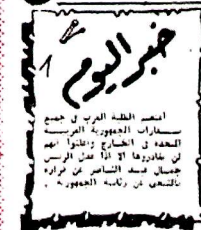 خبر اليوم
اعتصم الطلبة العرب في جميع
سفارات الجمهورية العربية
المتحدة في الخارج واعلنوا انهم
لن يغادروها الا اذا عدل الرئيس
جمال عبد الناصر عن قراره
بالتنحي عن رئاسة الجمهورية .